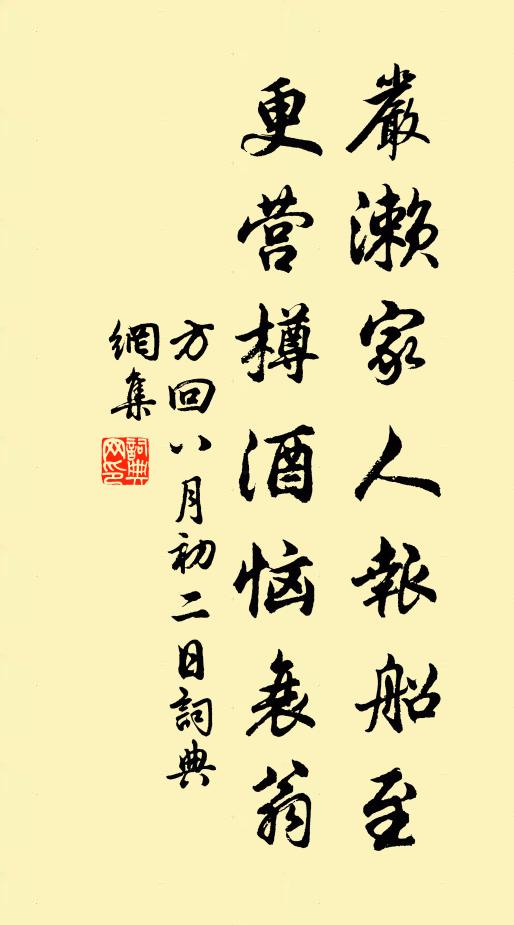 嚴瀨家人報船至
更营樽酒恼衰翁
方回八月初二日詞典
網集
詞典网印